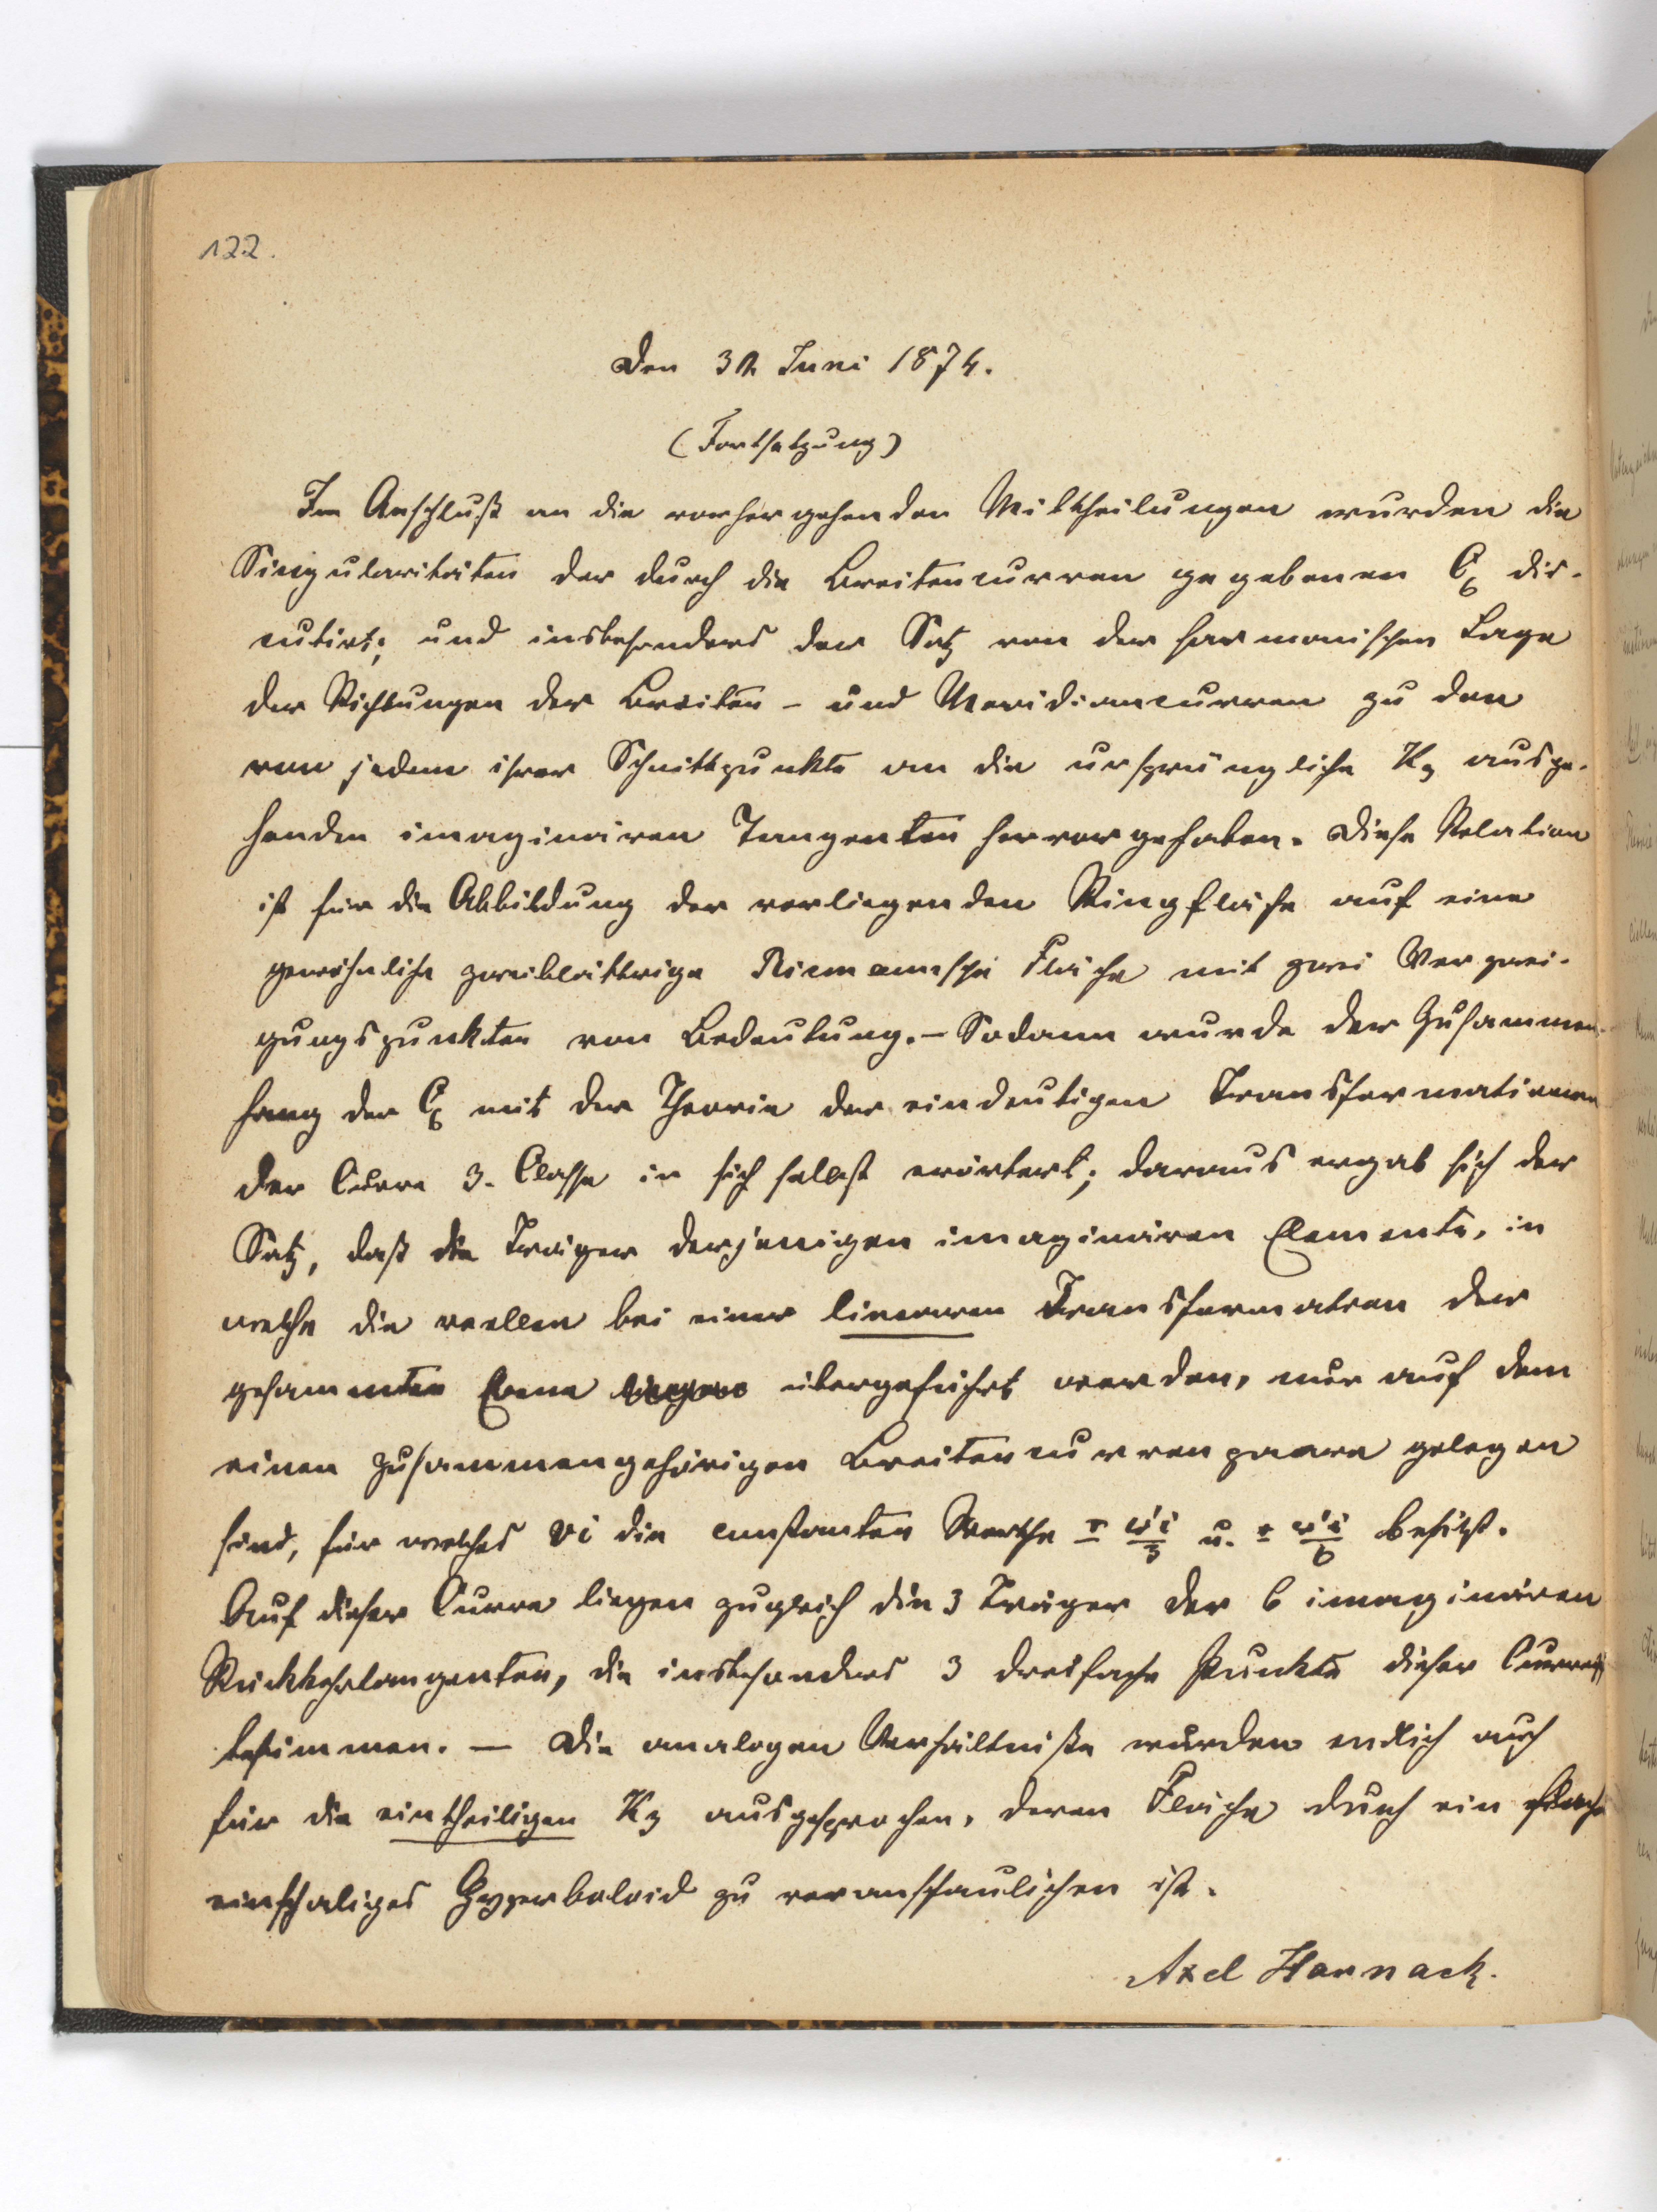 122.
Den 30. Juni 1874.
(Fortsetzung)
Im Anschluß an die vorhergehenden Mittheilungen wurden die
Singularitäten der durch die Breitencurven gegebenen C6 dis-
cutirt; und insbesonders der Satz von der harmonischen Lage
der Richtungen der Breiten- und Meridiancurven zu den
von jedem ihrer Schnittpunkte an die ursprüngliche K3 ausge-
henden imaginären Tangenten hervorgehoben. Diese Relation
ist für die Abbildung der vorliegenden Ringfläche auf eine
gewöhnliche zweiblättrige Riemannsche Fläche mit zwei Verzwei-
gungspunkten von Bedeutung. – Sodann wurde der Zusammen-
hang der C6 mit der Theorie der eindeutigen Transformationen
der Curve 3. Classe in sich selbst erörtert; daraus ergab sich der
Satz, daß die Träger derjenigen imaginären Elemente, in
welche die reellen bei einer linearen Transformation der
gesammten Ebene übergeführt werden, nur auf dem
einen zusammengehörigen Breitencurvenpaare gelegen
sind, für welches vi die constanten Werthe ± ω'i/3 u. ± ω'i/6 besitzt.
Auf dieser Curve liegen zugleich die 3 Träger der 6 imaginären
Rückkehrtangenten, die insbesonders 3 dreifache Punkte dieser Curve
bestimmen. — Die analogen Verhältniße wurden endlich auch
für die eintheiligen K3 ausgesprochen, deren Fläche durch ein
einschaliges Hyperboloid zu veranschaulichen ist.
Axel Harnack.